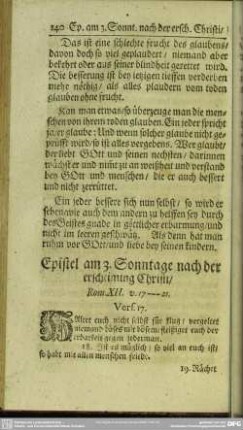 240 Ep. am 3. Sonnt. nach der ersch. Christi/
Das ist eine schlechte frucht des glaubens/
davon doch so viel geplaudert/ niemand aber
bekehrt oder aus seiner blindheit gerettet wird.
Die besserung ist bey ietzigen tieffen verderben
mehr nöthig/ als alles plaudern vom todten
glauben ohne frucht.
Kan man etwas/ so überzeuge man die men-
schen von ihrem todten glauben. Ein ieder spricht
ja/ er glaube: Und wenn solcher glaube nicht ge-
prüfft wird/ so ist alles vergebens. Wer glaubt/
der liebt GOtt und seinen nechsten/ darinnen
wächst er und nimt zu an weißheit und verstand
bey GOtt und menschen/ die er auch bessert
und nicht zerrüttet.
Ein ieder bessere sich nun selbst/ so wird er
sehen/ wie auch dem andern zu helffen sey durch
des Geistes gnade in göttlicher erbarmung/ und
nicht im leeren geschwätz. Als denn hat man
ruhm vor GOtt/ und liebe bey seinen kindern.
Epistel am 3. Sonntage nach der
erscheinung Christi/
Rom. XII. v. 17---21.
Vers. 17.
HAltet euch nicht selbst für klug/ vergeltet
niemand böses mit bösem: fleißiget euch der
erbarkeit gegen jederman.
18. Ist es möglich/ so viel an euch ist/
so habt mit allen menschen friede.
19. Rächet